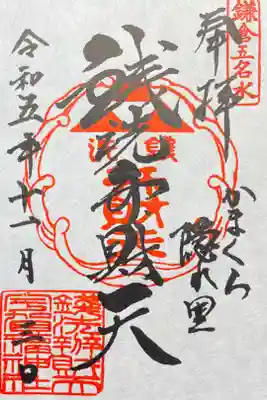 鎌倉五名水
奉拝
かまくら
隠れ里
銭洗弁財天
令和五年十一月
三日